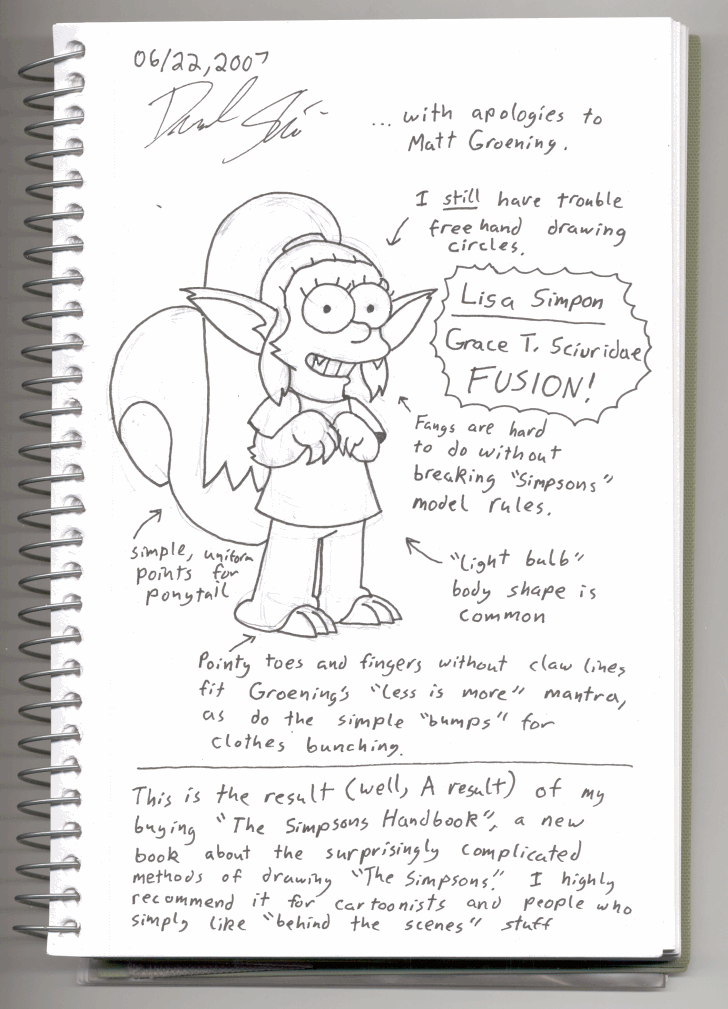 06/22,2007
... with apologies to
Matt Groening.
I still have trouble
freehand drawing
circles.
Lisa Simpon
Grace T. Sciuridae
FUSION!
Fangs are hard
to do without
breaking "Simpsons"
model rules.
simple, uniform
points for
ponytail
"light bulb"
body shape is
common
Pointy toes and fingers without claw lines
fit Groening's "less is more" mantra,
as do the simple "bumps" for
clothes bunching.
This is the result (well, A result) of my
buying "The Simpsons Handbook", a new
book about the surprisingly complicated
methods of drawing "The Simpsons." I highly
recommend it for cartoonists and people who
simply like "behind the scenes" stuff